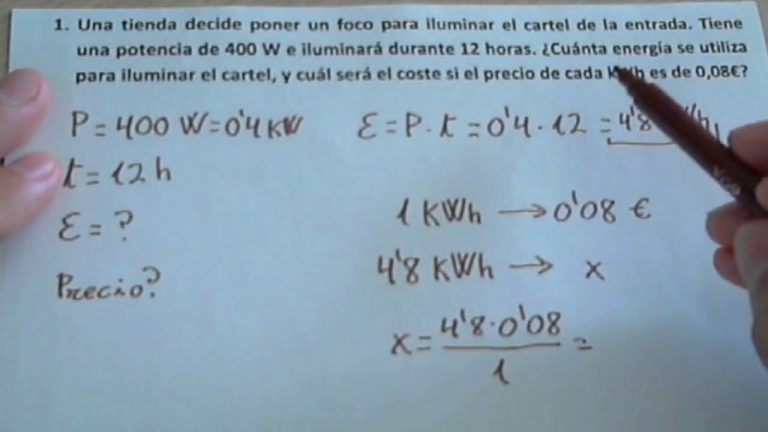 1. Una tienda decide poner un foco para iluminar el cartel de la entrada. Tiene
una potencia de 400 W e iluminará durante 12 horas. ¿Cuánta energía se utiliza
para iluminar el cartel, y cuál será el coste si el precio de cada es de 0,08€?
P = 400 W = 0'4 KW
t = 12 h
E = ?
Precio?
E = P · t = 0'4 · 12 = 4'8
1 KWh → 0'08 €
4'8 KWh → x
x = 4'8 · 0'08 / 1 =